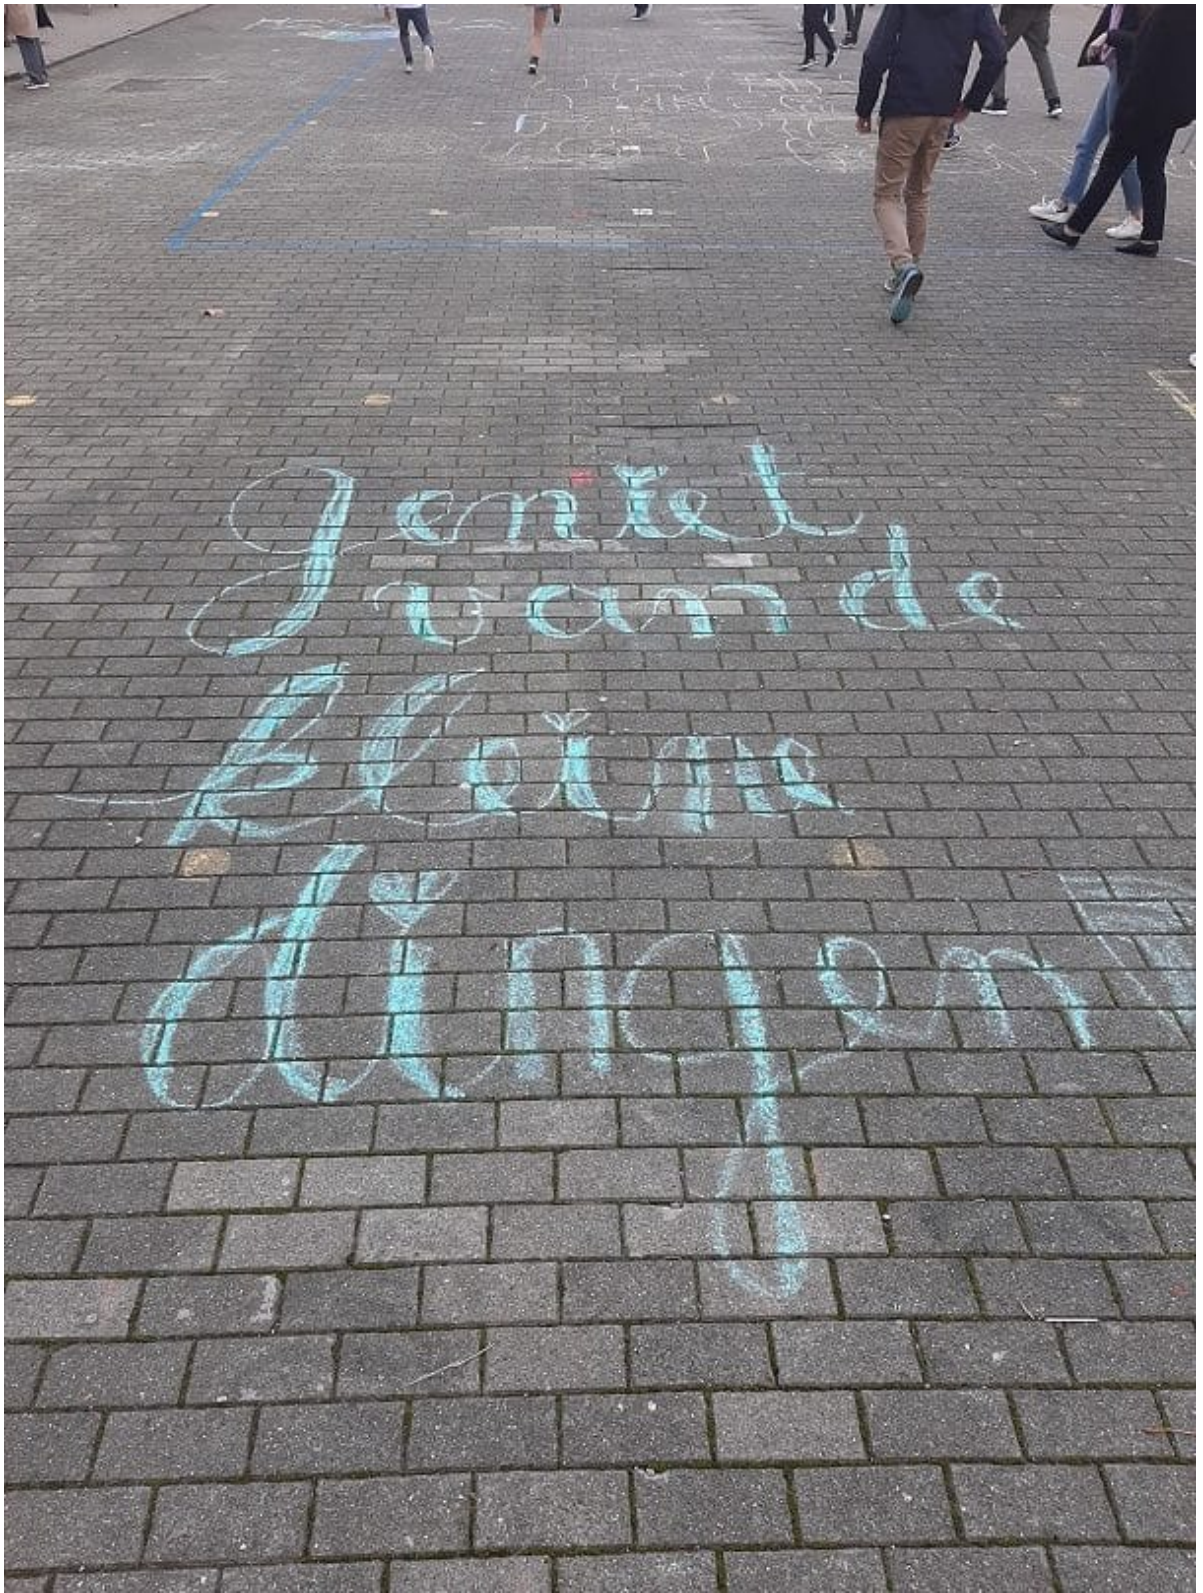 geniet
van de
kleine
dingen